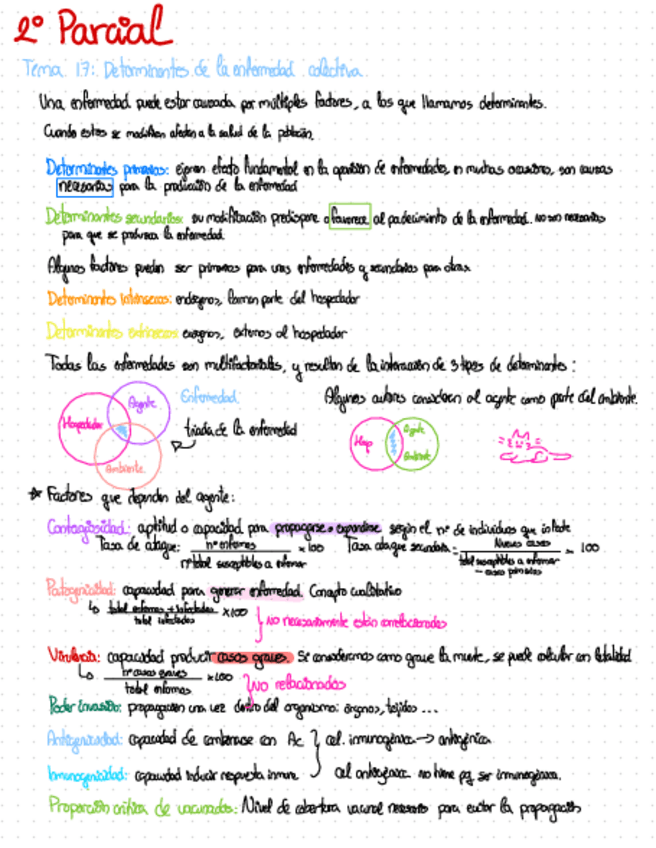 2º Parcial
Tema 17: Determinantes de la enfermedad colectiva.
Una enfermedad puede estar causada por múltiples factores, a los que llamamos determinantes.
Cuando estos se modifican afectan a la salud de la población.
Determinantes primarios: ejercen efecto fundamental en la aparición de enfermedades, en muchas ocasiones, son causas
necesarias para la producción de la enfermedad
Determinantes secundarios: su modificación predispone o favorece al padecimiento de la enfermedad. No son necesarios
para que se produzca la enfermedad.
Algunos factores pueden ser primarios para unas enfermedades y secundarios para otras
Determinantes intrínsecos: endógenos, forman parte del hospedador
Determinantes extrínsecos: exógenos, externos al hospedador
Todas las enfermedades son multifactoriales, y resultan de la interacción de 3 tipos de determinantes:
Hospedador
Agente
Ambiente
Enfermedad:
triada de la enfermedad
Algunos autores consideran al agente como parte del ambiente.
Hosp
Agente
Ambient
* Factores que dependen del agente:
Contagiosidad: aptitud o capacidad para propagarse o expandirse según el nº de individuos que infecte
Tasa de ataque: nº enfermos / nº total susceptibles a enfermar x100 Tasa ataque secundaria = Nuevos casos / total susceptibles a enfermar - casos primarios 100
Patogenicidad: capacidad para generar enfermedad. Concepto cualitativo
total enfermos / total infectados x100
No necesariamente están correlacionados
Virulencia: capacidad producir casos graves. Si consideramos como grave la muerte, se puede calcular con letalidad
nº casos graves / total enfermos x100
No relacionados
Poder invasivo: propagación una vez dentro del organismo: órganos, tejidos ...
Antigenicidad: capacidad de combinarse con Ac
cel. inmunogénica → antigénica
Inmunogenicidad: capacidad inducir respuesta inmune
Cel antigénica no tiene pq ser inmunogénica.
Proporción crítica de vacunados: Nivel de cobertura vacunal necesario para evitar la propagación